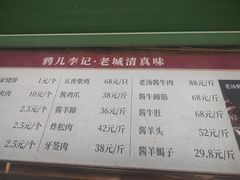 鸦儿李记·老城清真味
家烧饼 1元/个 五香柴鸡 68元/只 老汤酱牛肉 88元/斤
夹肉 10元/个 酱鸡爪 38元/斤 酱牛蹄筋 68元/斤
2.5元/个 酱羊蹄 36元/斤 酱牛肚 68元/斤
2.5元/个 炸松肉 42元/斤 酱羊头 52元/斤
2.5元/个 牙签肉 38元/斤 酱羊蝎子 29.8元/斤